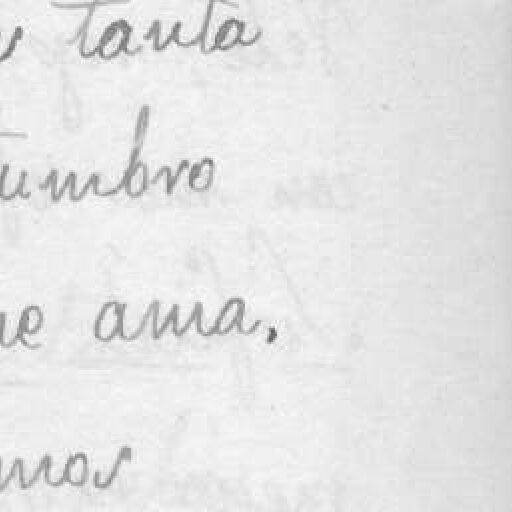 tanta
tumbro
ue ama.
mos